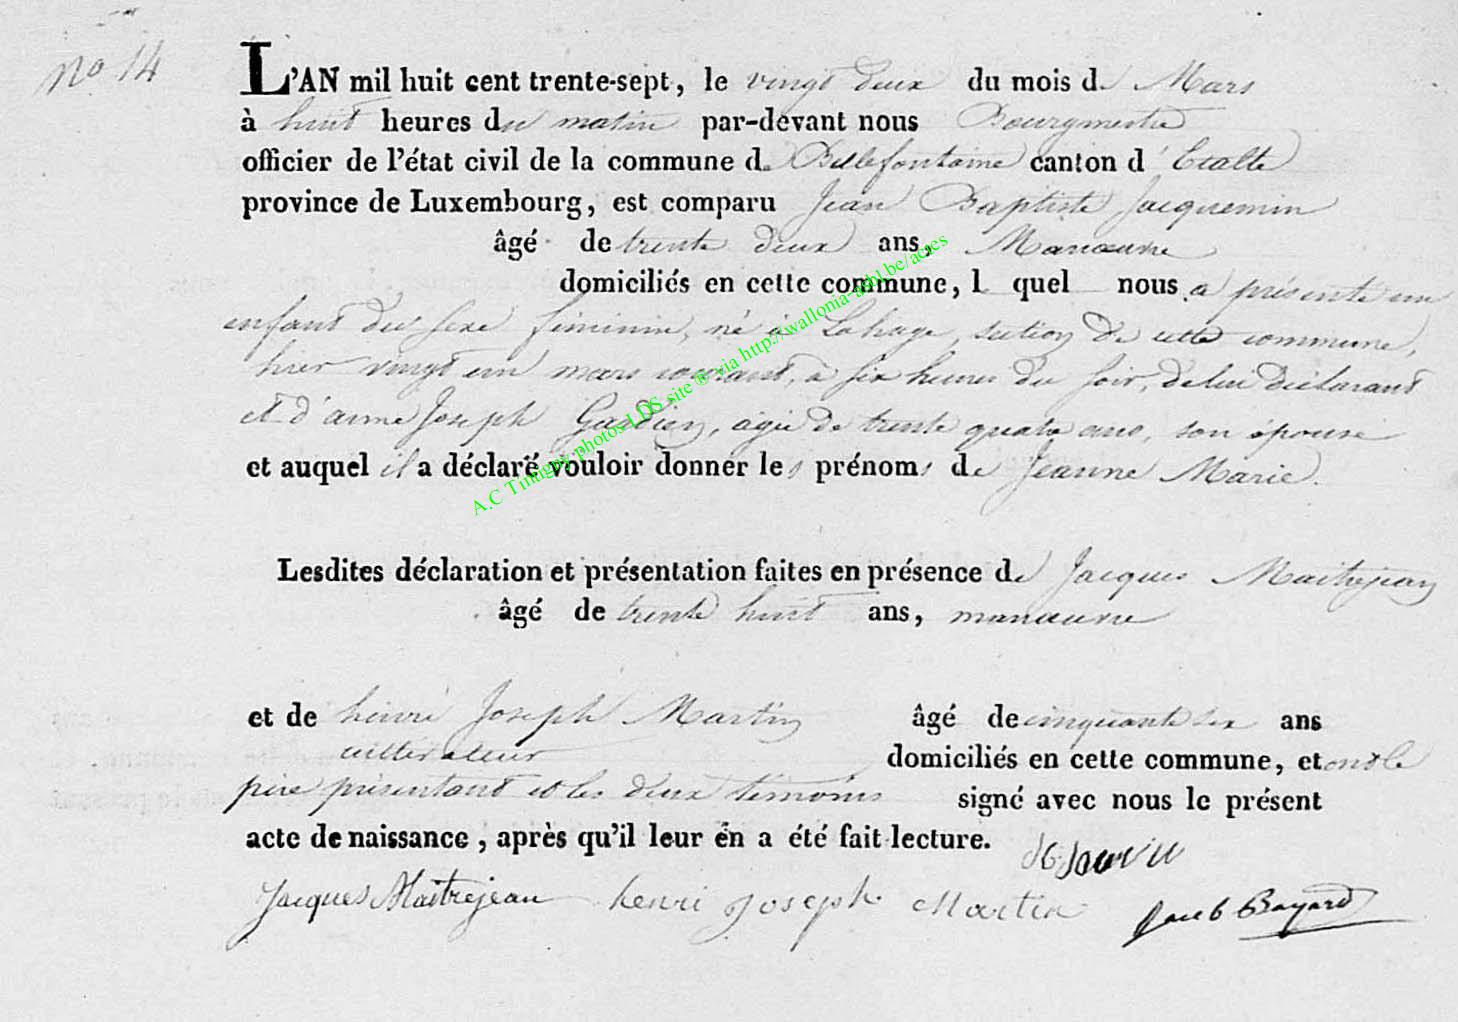 no 14
L'AN mil huit cent trente-sept, le vingt deux du mois de Mars
à huit heures du matin par-devant nous Bourgmestre
officier de l'état civil de la commune de Bellefontaine canton d'Etalle
province de Luxembourg, est comparu Jean Baptiste Jacquemin
âgé de trente deux ans, Manœuvre
domiciliés en cette commune, l quel nous a présenté un
enfant du sexe féminin, né à Lahage, section de cette commune,
hier vingt un mars courant, à six heures du soir, de lui déclarant
et d'anne Joseph , agée de trente quatre ans, son épouse
et auquel il a déclaré vouloir donner les prénoms de Jeanne Marie.
Lesdites déclaration et présentation faites en présence de Jacques Maitrejean
âgé de trente huit ans, manœuvre
et de henri Joseph Martin âgé de cinquante six ans
cultivateur domiciliés en cette commune, et ont le
père présentant et les deux témoins signé avec nous le présent
acte de naissance, après qu'il leur en a été fait lecture.
Jacques Maitrejean henri Joseph Martin Jacob Bayard
A.C Tintigny photos LDS site ® via http://wallonia-asbl.be/actes